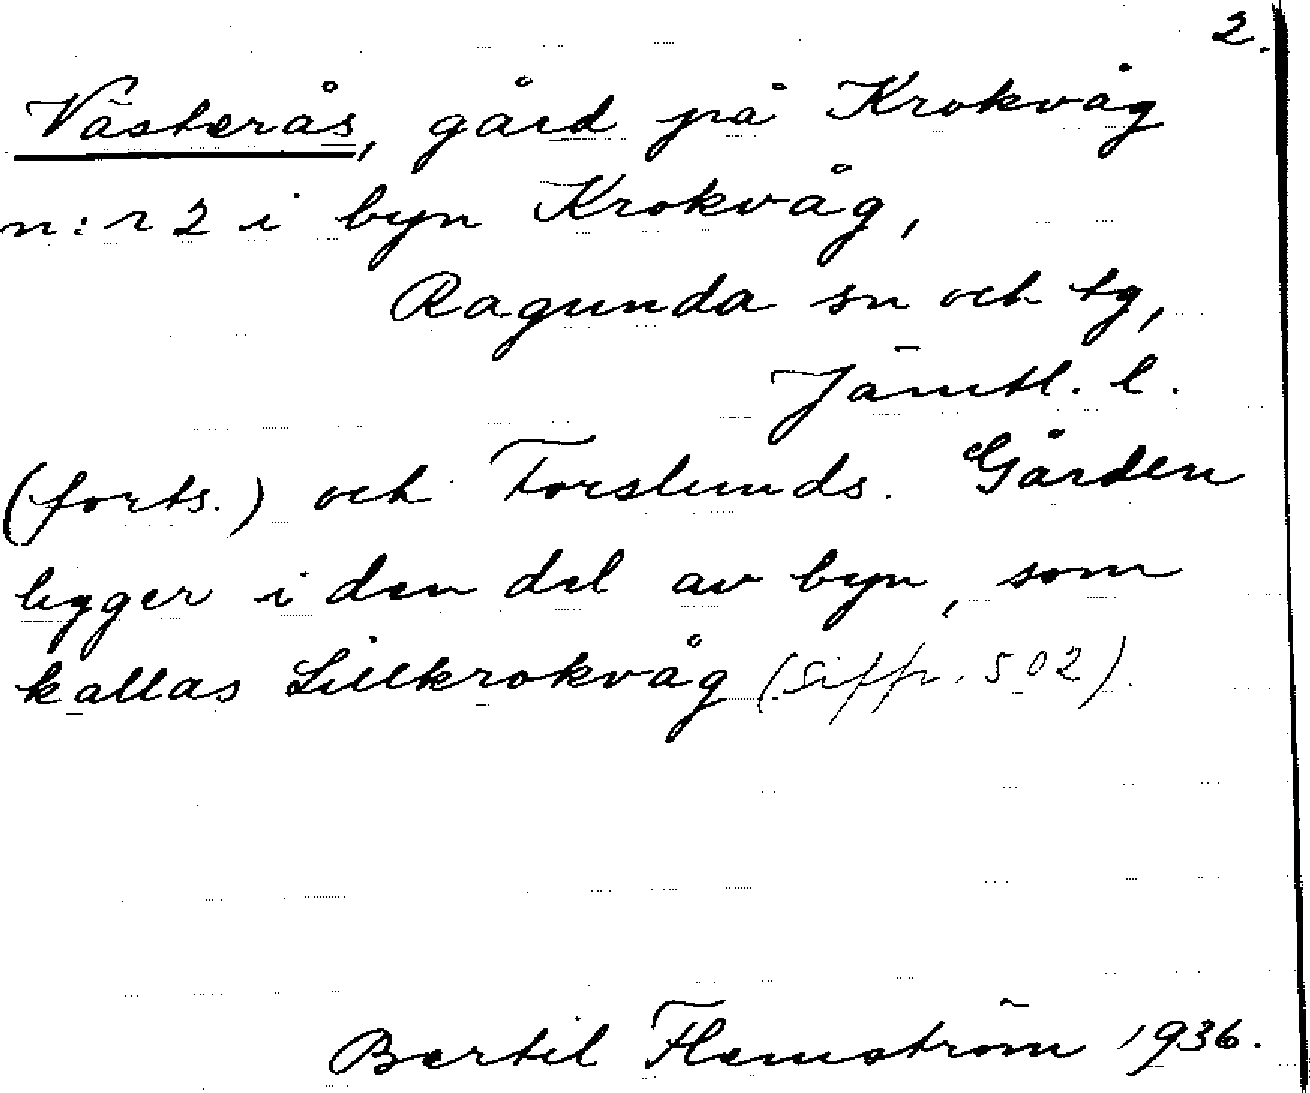 2.
Västerås, gård på Krokvåg
n:r 2 i byn Krokvåg,
Ragunda sn och tg,
Jämtl. l.
(forts.) och Forslunds. Gården
ligger i den del av byn, som
kallas Lillkrokvåg (Siffr. 502).
Bertil Flemström 1936.